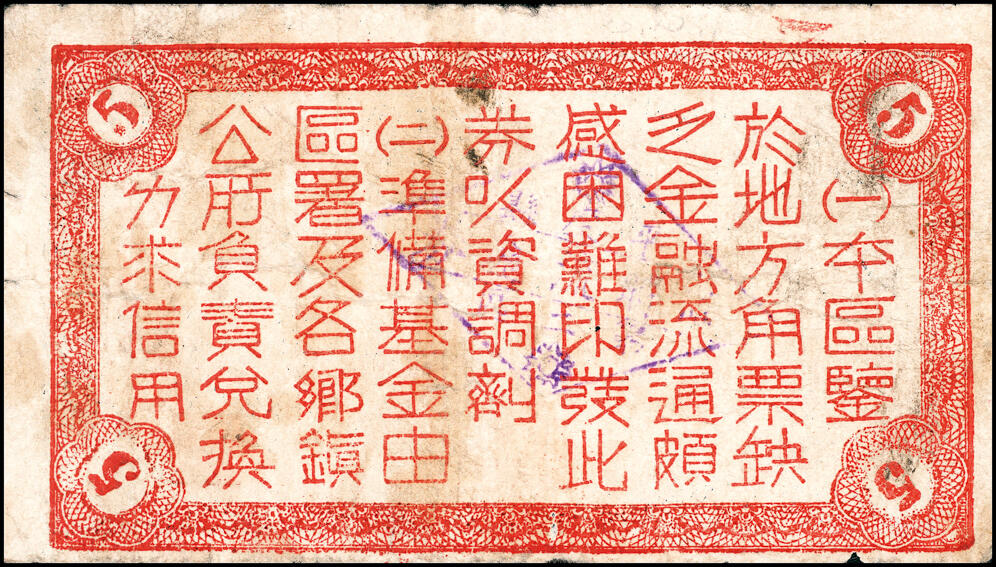 5
5
㈠本區鑒
於地方角票缺
之金融流通頗
感困難印發此
券以資調劑
㈡準備基金由
區署及各鄉鎮
公所負責兌換
力求信用
5
5